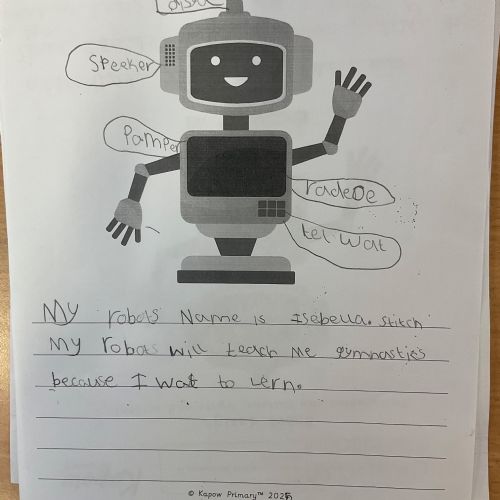 Speeker
Pamper
radeoe
tel wat
My robots Name is Isebella. Stitch
My robots will teach me gymnastjes
because I wat to lern.
© Kapow Primary™ 2025